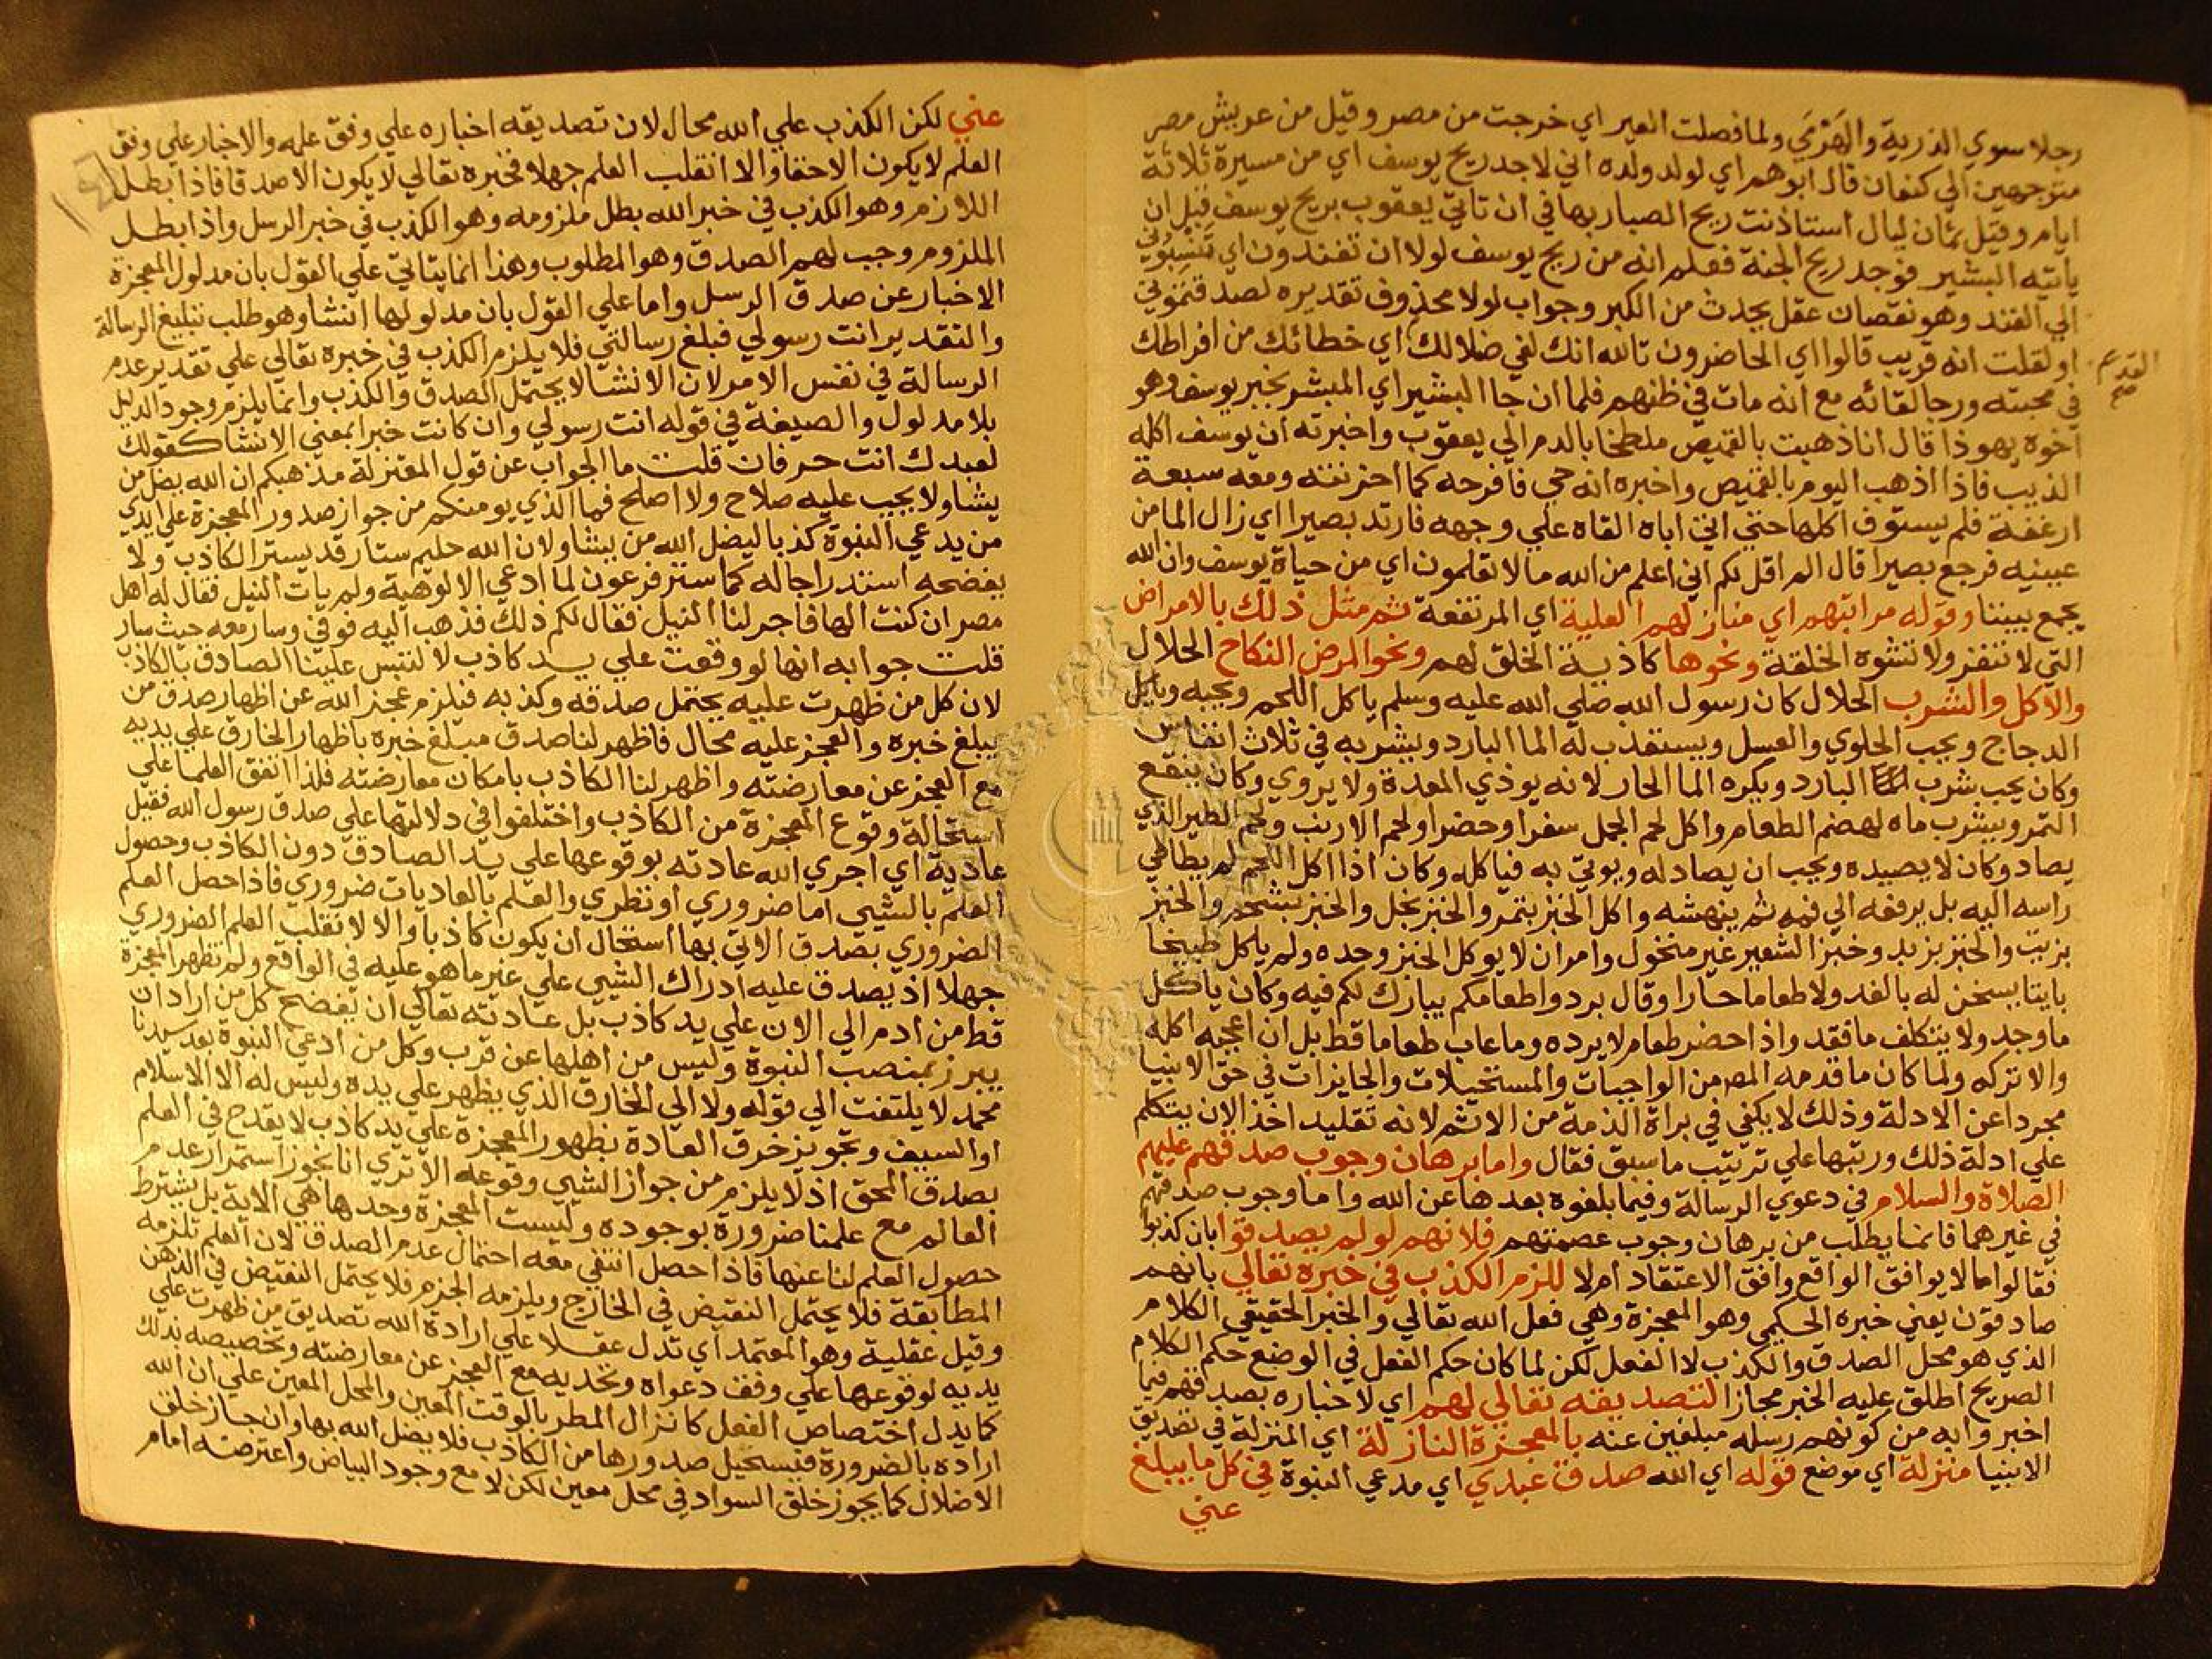 رجلا سوي الذرية والهرمي ولما فصلت العير اي خرجت من مصر وقيل من عريش مصر
متوجهين الي كنعان قال ابوهم اي لولد ولده اني لاجد ريح يوسف اي من مسيرة ثلاثة
ايام وقيل ثمان ليال استاذنت ريح الصبا ربها في ان تاتي يعقوب بريح يوسف قبل ان
ياتيه البشير فوجد ريح الجنة فعلم انه من ريح يوسف لولا ان تفندون اي تنسبوني
الي الفند وهو نقصان عقل يحدث من الكبر وجواب لولا محذوف تقديره لصدقتموني
او لقلت انه قريب قالوا اي الحاضرون تالله انك لفي ضلالك اي خطائك من افراطك
القديم صح
في محبته ورجا لقائه مع انه مات في ظنهم فلما ان جا البشير اي المبشر بخبر يوسف وهو
اخوه يهوذا قال انا ذهبت بالقميص ملطخا بالدم الي يعقوب واخبرته ان يوسف اكله
الذيب فاذا اذهب اليوم بالقميص واخبره انه حي فافرحه كما احزنته ومعه سبعة
ارغفة فلم يستوف اكلها حتي اتي اباه القاه علي وجهه فارتد بصيرا اي زال الما من
عينيه فرجع بصيرا قال الم اقل لكم اني اعلم من الله ما لا تعلمون اي من حياة يوسف وان الله
يجمع بيننا وقوله مراتبهم اي منازلهم العلية اي المرتفعة ثم مثل ذلك بالامراض
التي لا تنفر ولا تشوه الخلقة ونحوها كاذية الخلق لهم ونحو المرض النكاح الحلال
والاكل والشرب الحلال كان رسول الله صلي الله عليه وسلم ياكل اللحم ويحبه وياكل
الدجاج ويحب الحلوي والعسل ويستعذب له الما البارد ويشربه في ثلاث انفاس
وكان يحب شرب البارد ويكره الما الحار لانه يوذي المعدة ولا يروي وكان ينقع
التمر ويشرب ماه لهضم الطعام واكل لحم الجمل سفرا وحضرا ولحم الارنب ولحم الطير الذي
يصاد وكان لا يصيده ويحب ان يصاد له ويوتي به فياكله وكان اذا اكل اللحم لم يطاطي
راسه اليه بل يرفعه الي فمه ثم ينهشه واكل الخبز بتمر والخبز بخل والخبز بشحم والخبز
بزيت والخبز بزبد وخبز الشعير غير منخول وامر ان لا يوكل الخبز وحده ولم ياكل طبيخا
بايتا يسخن له بالغد ولا طعاما حارا وقال بردوا طعامكم يبارك لكم فيه وكان ياكل
ما وجد ولا يتكلف ما فقد واذا حضر طعام لا يرده وما عاب طعاما قط بل ان اعجبه اكله
والا تركه ولما كان ما قدمه المص من الواجبات والمستحيلات والجايزات في حق الانبيا
مجردا عن الادلة وذلك لا يكفي في براة الذمة من الاثم لانه تقليد اخذ الان يتكلم
علي ادلة ذلك ورتبها علي ترتيب ما سبق فقال واما برهان وجوب صدقهم عليهم
الصلاة والسلام في دعوي الرسالة وفيما بلغوه بعدها عن الله واما وجوب صدقهم
في غيرهما فانما يطلب من برهان وجوب عصمتهم فلانهم لو لم يصدقوا بان كذبوا
فقالوا ما لا يوافق الواقع وافق الاعتقاد ام لا للزم الكذب في خبره تعالي بانهم
صادقون يعني خبره الحكيمي وهو المعجزة وهي فعل الله تعالي والخبر الحقيقي الكلام
الذي هو محل الصدق والكذب لا الفعل لكن لما كان حكم الفعل في الوضع حكم الكلام
الصريح اطلق عليه الخبر مجازا لتصديقه تعالي لهم اي لاخباره بصدقهم فيما
اخبروا به من كونهم رسله مبلغين عنه بالمعجزة النازلة اي المنزلة في تصديق
الانبيا منزلة اي موضع قوله اي الله صدق عبدي اي مدعي النبوة في كل ما يبلغ
عني
عني لكن الكذب علي الله محال لان تصديقه اخباره علي وفق علمه والاخبار علي وفق
العلم لا يكون الا حقا والا انقلب العلم جهلا فخبره تعالي لا يكون الا صدقا فاذا بطل
اللازم وهو الكذب في خبر الله بطل ملزومه وهو الكذب في خبر الرسل واذا بطل
الملزوم وجب لهم الصدق وهو المطلوب وهذا انما يتاتي علي القول بان مدلول المعجزة
الاخبار عن صدق الرسل واما علي القول بان مدلولها انشا وهو طلب تبليغ الرسالة
والتقدير انت رسولي فبلغ رسالتي فلا يلزم الكذب في خبره تعالي علي تقدير عدم
الرسالة في نفس الامر لان الانشا لا يحتمل الصدق والكذب وانما يلزم وجود الدليل
بلا مدلول والصيغة في قوله انت رسولي وان كانت خبرا بمعني الانشا كقولك
لعبدك انت حر فان قلت ما الجواب عن قول المعتزلة مذهبكم ان الله يضل من
يشا ولا يجب عليه صلاح ولا اصلح فما الذي يومنكم من جواز صدور المعجزة علي ايدي
من يدعي النبوة كذبا ليضل الله من يشا ولان الله حليم ستار قد يستر الكاذب ولا
يفضحه استدراجا له كما ستر فرعون لما ادعي الالوهية ولم يات النيل فقال له اهل
مصر ان كنت الها فاجر لنا النيل فقال لكم ذلك فذهب اليه فوفي وسار معه حيث سار
قلت جوابه انها لو وقعت علي يد كاذب لالتبس علينا الصادق بالكاذب
لان كل من ظهرت عليه يحتمل صدقه وكذبه فيلزم عجز الله عن اظهار صدق من
يبلغ خبره والعجز عليه محال فاظهر لنا صدق مبلغ خبره باظهار الخارق علي يديه
مع العجز عن معارضته واظهر لنا الكاذب بامكان معارضته فلذا اتفق العلما علي
استحالة وقوع المعجزة من الكاذب واختلفوا في دلالتها علي صدق رسول الله فقيل
عادية اي اجري الله عادته بوقوعها علي يد الصادق دون الكاذب وحصول
العلم بالشيي اما ضروري او نظري والعلم بالعاديات ضروري فاذا حصل العلم
الضروري بصدق الاتي بها استحال ان يكون كاذبا والا لانقلب العلم الضروري
جهلا اذ يصدق عليه ادراك الشيي علي غير ما هو عليه في الواقع ولم تظهر المعجزة
قط من ادم الي الان علي يد كاذب بل عادته تعالي ان يفضح كل من اراد ان
يبرز بمنصب النبوة وليس من اهلها عن قرب وكل من ادعي النبوة بعد سيدنا
محمد لا يلتفت الي قوله ولا الي الخارق الذي يظهر علي يده وليس له الا الاسلام
او السيف وتجويز خرق العادة بظهور المعجزة علي يد كاذب لا يقدح في العلم
بصدق المحق اذ لا يلزم من جواز الشيي وقوعه الا تري انا نجوز استمرار عدم
العالم مع علمنا ضرورة بوجوده وليست المعجزة وحدها هي الاية بل يشترط
حصول العلم لنا عنها فاذا حصل انتفي معه احتمال عدم الصدق لان العلم تلزمه
المطابقة فلا يحتمل النقيض في الخارج ويلزمه الجزم فلا يحتمل النقيض في الذهن
وقيل عقلية وهو المعتمد اي تدل عقلا علي ارادة الله تصديق من ظهرت علي
يديه لوقوعها علي وفق دعواه وتحديه مع العجز عن معارضته وتخصيصه بذلك
كما يدل اختصاص الفعل كانزال المطر بالوقت المعين والمحل المعين علي ان الله
اراده بالضرورة فيستحيل صدورها من الكاذب فلا يضل الله بها وان جاز خلق
الاضلال كما يجوز خلق السواد في محل معين لكن لا مع وجود البياض واعترضه امام